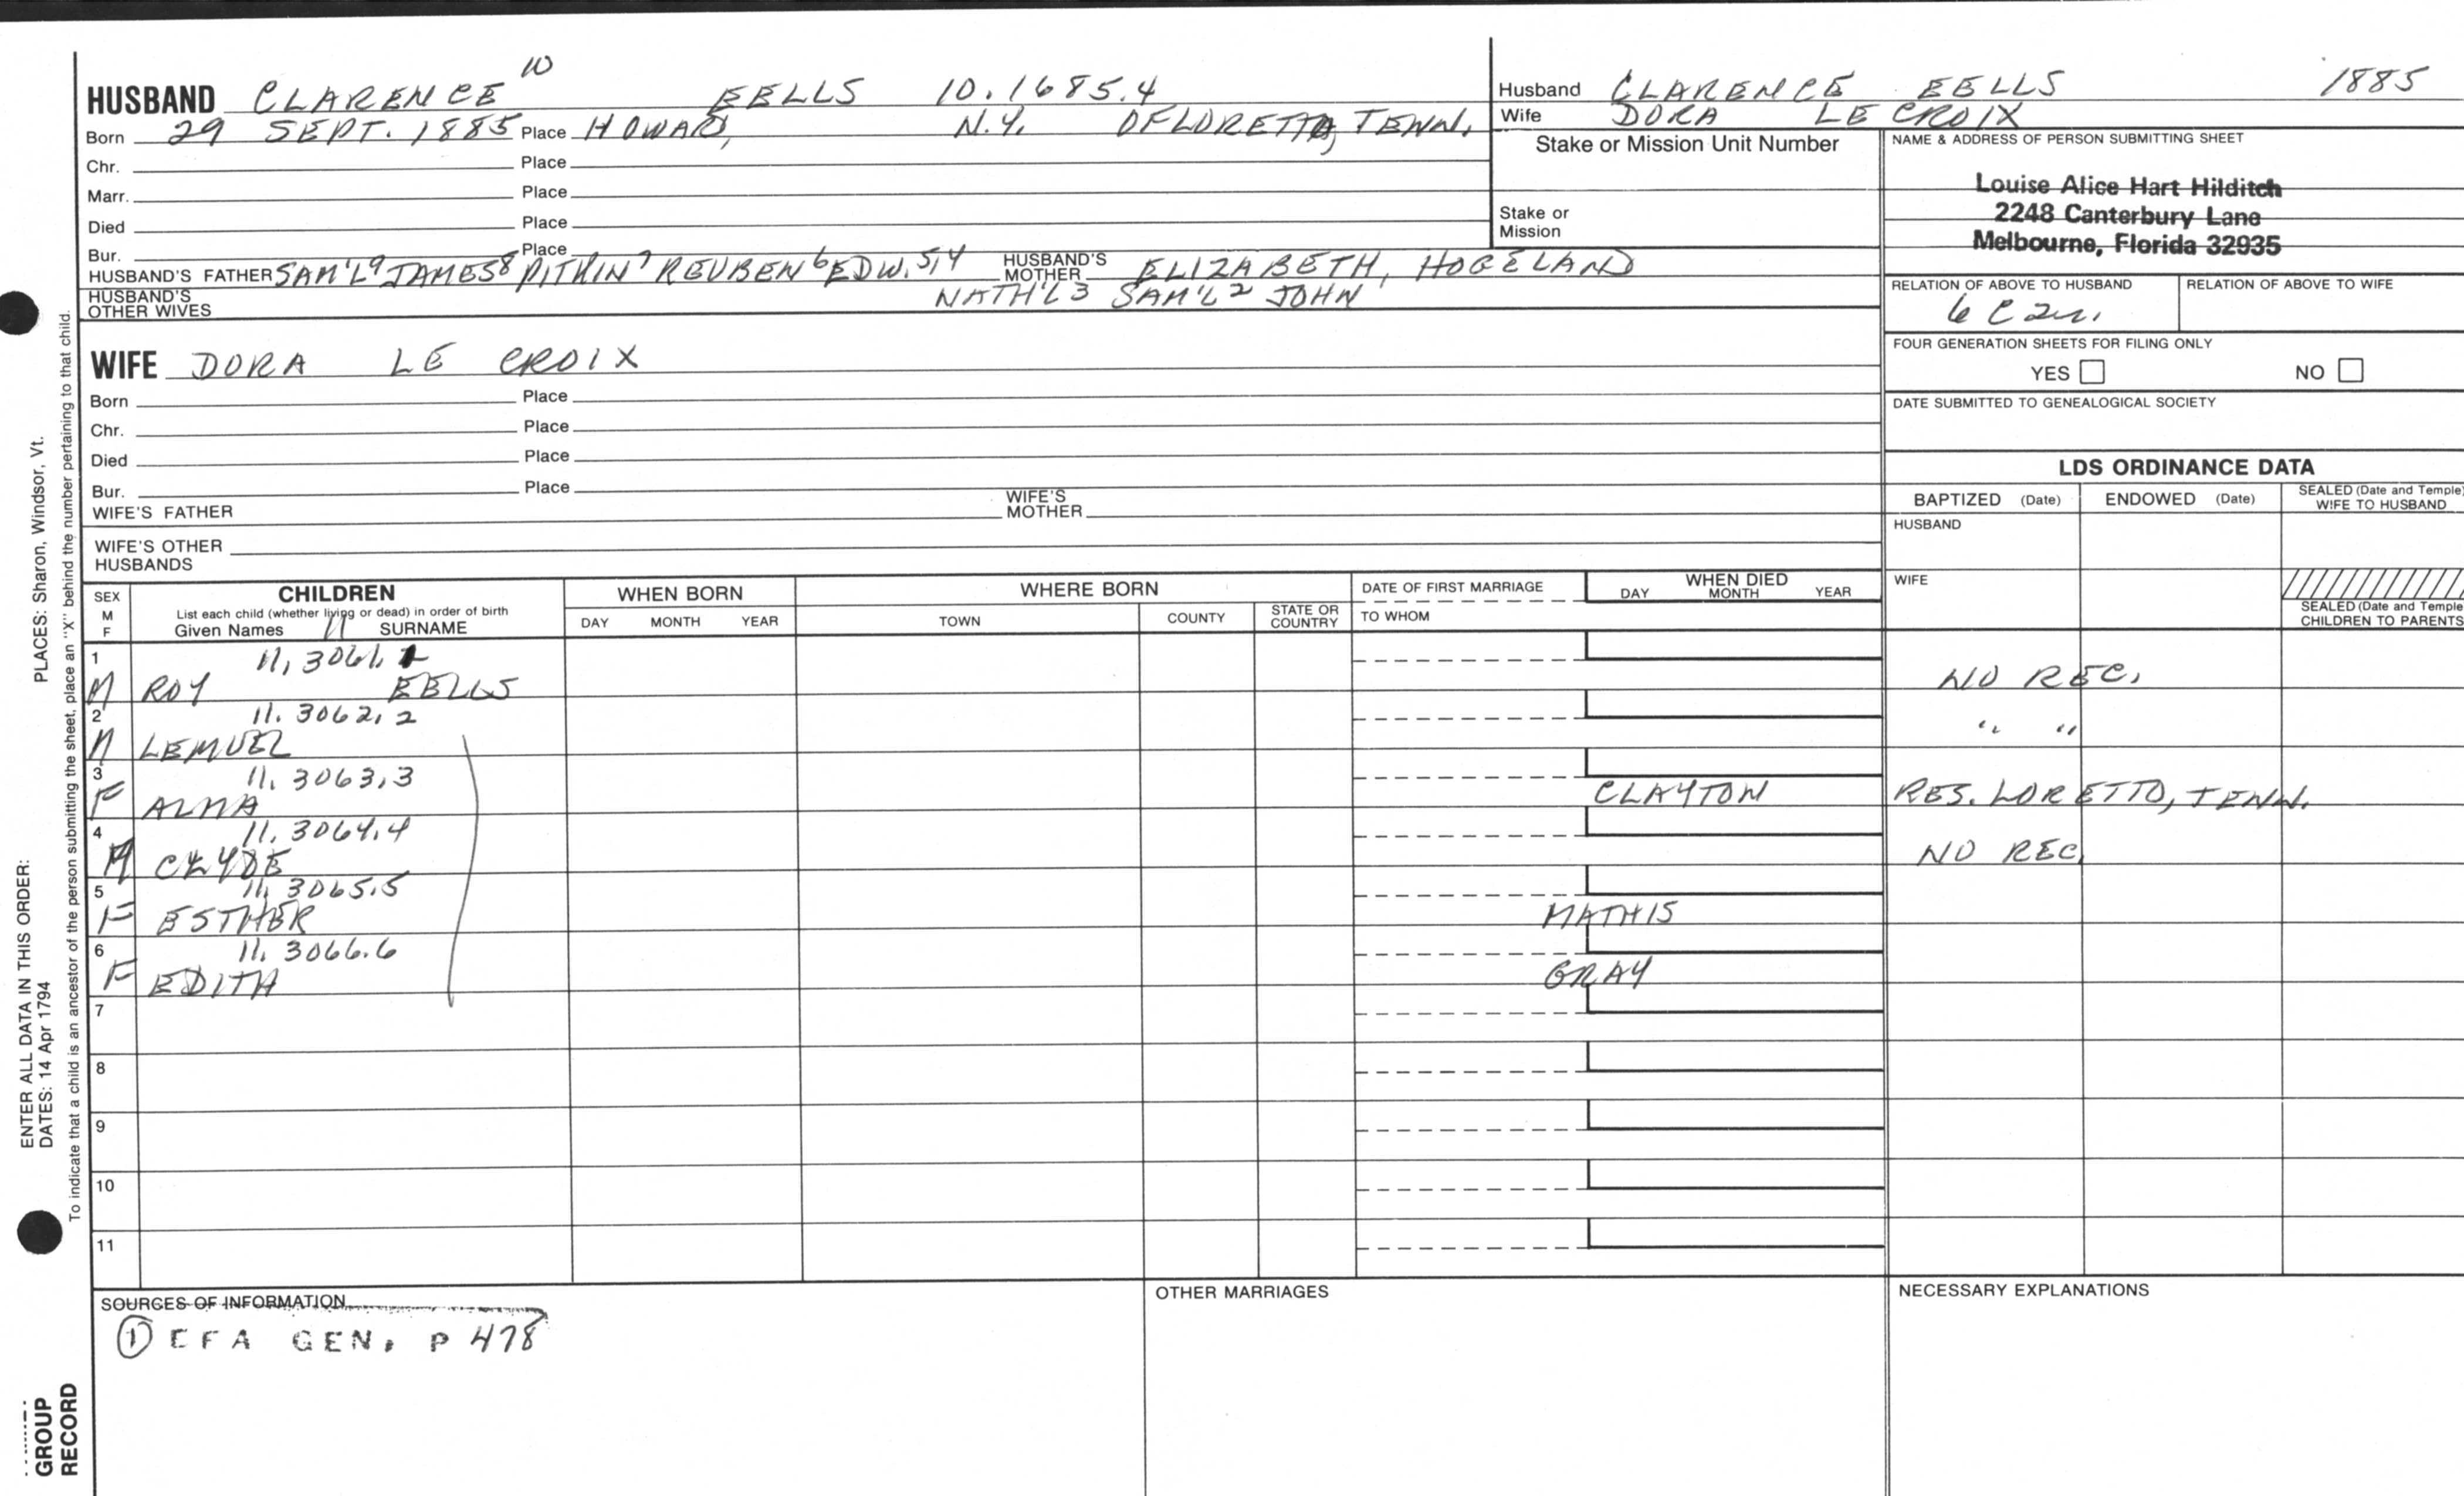 HUSBAND CLARENCE 10 EELLS 10.1685.4
Born 29 SEPT. 1885 Place HOWARD, N.Y. OF LORETTO, TENN.
Chr. Place
Marr. Place
Died Place
Bur. Place
HUSBAND'S FATHER SAM'L 9 JAMES 8 PITKIN 7 REUBEN 6 EDW. 5,4 HUSBAND'S MOTHER ELIZABETH, HOGELAND
HUSBAND'S OTHER WIVES NATH'L 3 SAM'L 2 JOHN
Husband CLARENCE EELLS 1885
Wife DORA LE CROIX
Stake or Mission Unit Number
Stake or Mission
NAME & ADDRESS OF PERSON SUBMITTING SHEET
Louise Alice Hart Hilditch
2248 Canterbury Lane
Melbourne, Florida 32935
RELATION OF ABOVE TO HUSBAND RELATION OF ABOVE TO WIFE
6 C 2
FOUR GENERATION SHEETS FOR FILING ONLY
YES NO
DATE SUBMITTED TO GENEALOGICAL SOCIETY
WIFE DORA LE CROIX
Born Place
Chr. Place
Died Place
Bur. Place
WIFE'S FATHER WIFE'S MOTHER
WIFE'S OTHER HUSBANDS
LDS ORDINANCE DATA
BAPTIZED (Date) ENDOWED (Date) SEALED (Date and Temple) WIFE TO HUSBAND
HUSBAND
WIFE
SEALED (Date and Temple) CHILDREN TO PARENTS
SEX M F CHILDREN WHEN BORN WHERE BORN DATE OF FIRST MARRIAGE WHEN DIED
List each child (whether living or dead) in order of birth
Given Names 11 SURNAME DAY MONTH YEAR TOWN COUNTY STATE OR COUNTRY TO WHOM DAY MONTH YEAR
1 11, 3061.
M ROY EELLS NO REC.
2 11. 3062.2
M LEMUEL " "
3 11. 3063.3
F ALMA CLAYTON RES. LORETTO, TENN.
4 11. 3064.4
M CLYDE NO REC
5 11. 3065.5
F ESTHER MATHIS
6 11. 3066.6
F EDITH GRAY
7
8
9
10
11
SOURCES OF INFORMATION
① EFA GEN. P 478
OTHER MARRIAGES
NECESSARY EXPLANATIONS
PLACES: Sharon, Windsor, Vt.
ENTER ALL DATA IN THIS ORDER:
DATES: 14 Apr 1794
To indicate that a child is an ancestor of the person submitting the sheet, place an "X" behind the number pertaining to that child.
GROUP
RECORD